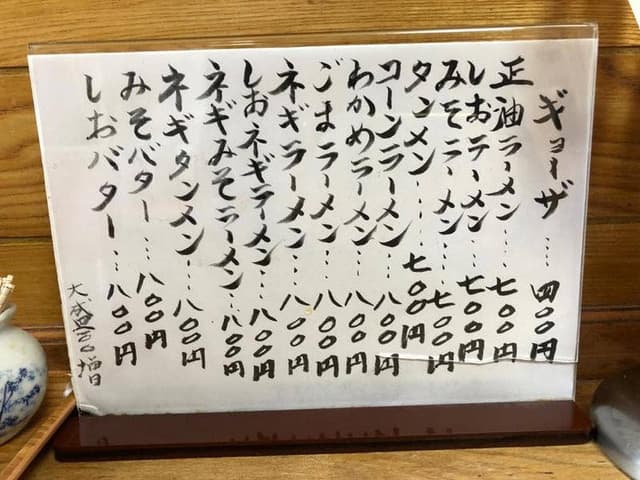 ギョーザ……四〇〇円
正油ラーメン……七〇〇円
しおラーメン……七〇〇円
みそラーメン……七〇〇円
タンメン……七〇〇円
コーンラーメン…八〇〇円
わかめラーメン…八〇〇円
ごまラーメン…八〇〇円
ネギラーメン…八〇〇円
しおネギラーメン…八〇〇円
ネギみそラーメン…八〇〇円
ネギタンメン…八〇〇円
みそバター……八〇〇円
しおバター……八〇〇円
大盛 増